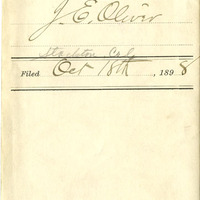 J. E. Oliver
Stockton, Cal.
Filed Oct 18th, 1898